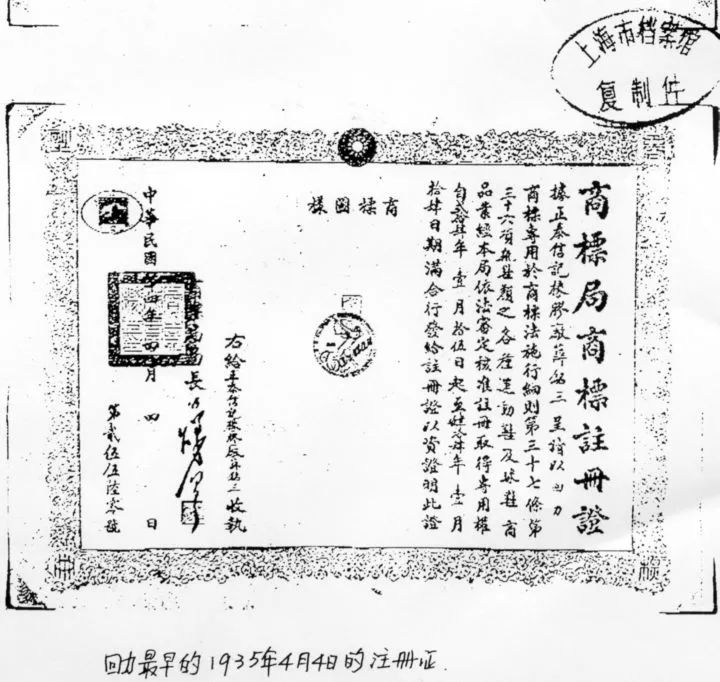 上海市档案馆
复制件
商標局商標註冊證
據正泰信記橡膠廠薛銘三呈請以回力
商標專用於商標法施行細則第三十七條第
三十六項靴鞋類之各種運動鞋及球鞋商
品業經本局依法審定核准註冊取得專用權
自貳拾肆年壹月拾伍日起至肆拾肆年壹月
拾肆日期滿合行發給註冊證以資證明此證
商標圖樣
右給正泰信記橡膠廠薛銘三收執
商標局局長
中華民國廿四年四月四日
第貳伍伍陸零號
回力最早的1935年4月4日的注册证.